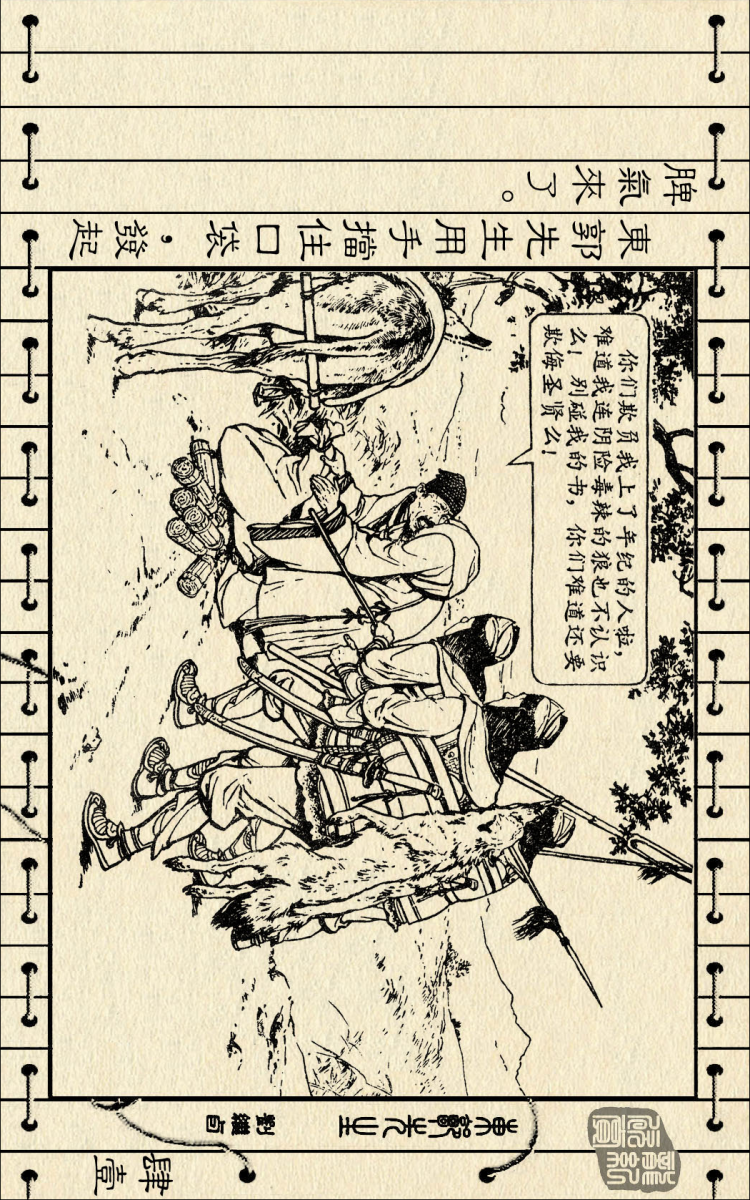 東郭先生用手擋住口袋，發起
脾氣來了。
你们欺负我上了年纪的人啦，
难道我连阴险毒辣的狼也不认识
么！别碰我的书，你们难道还要
欺侮圣贤么！
東郭先生
劉繼卣
肆壹